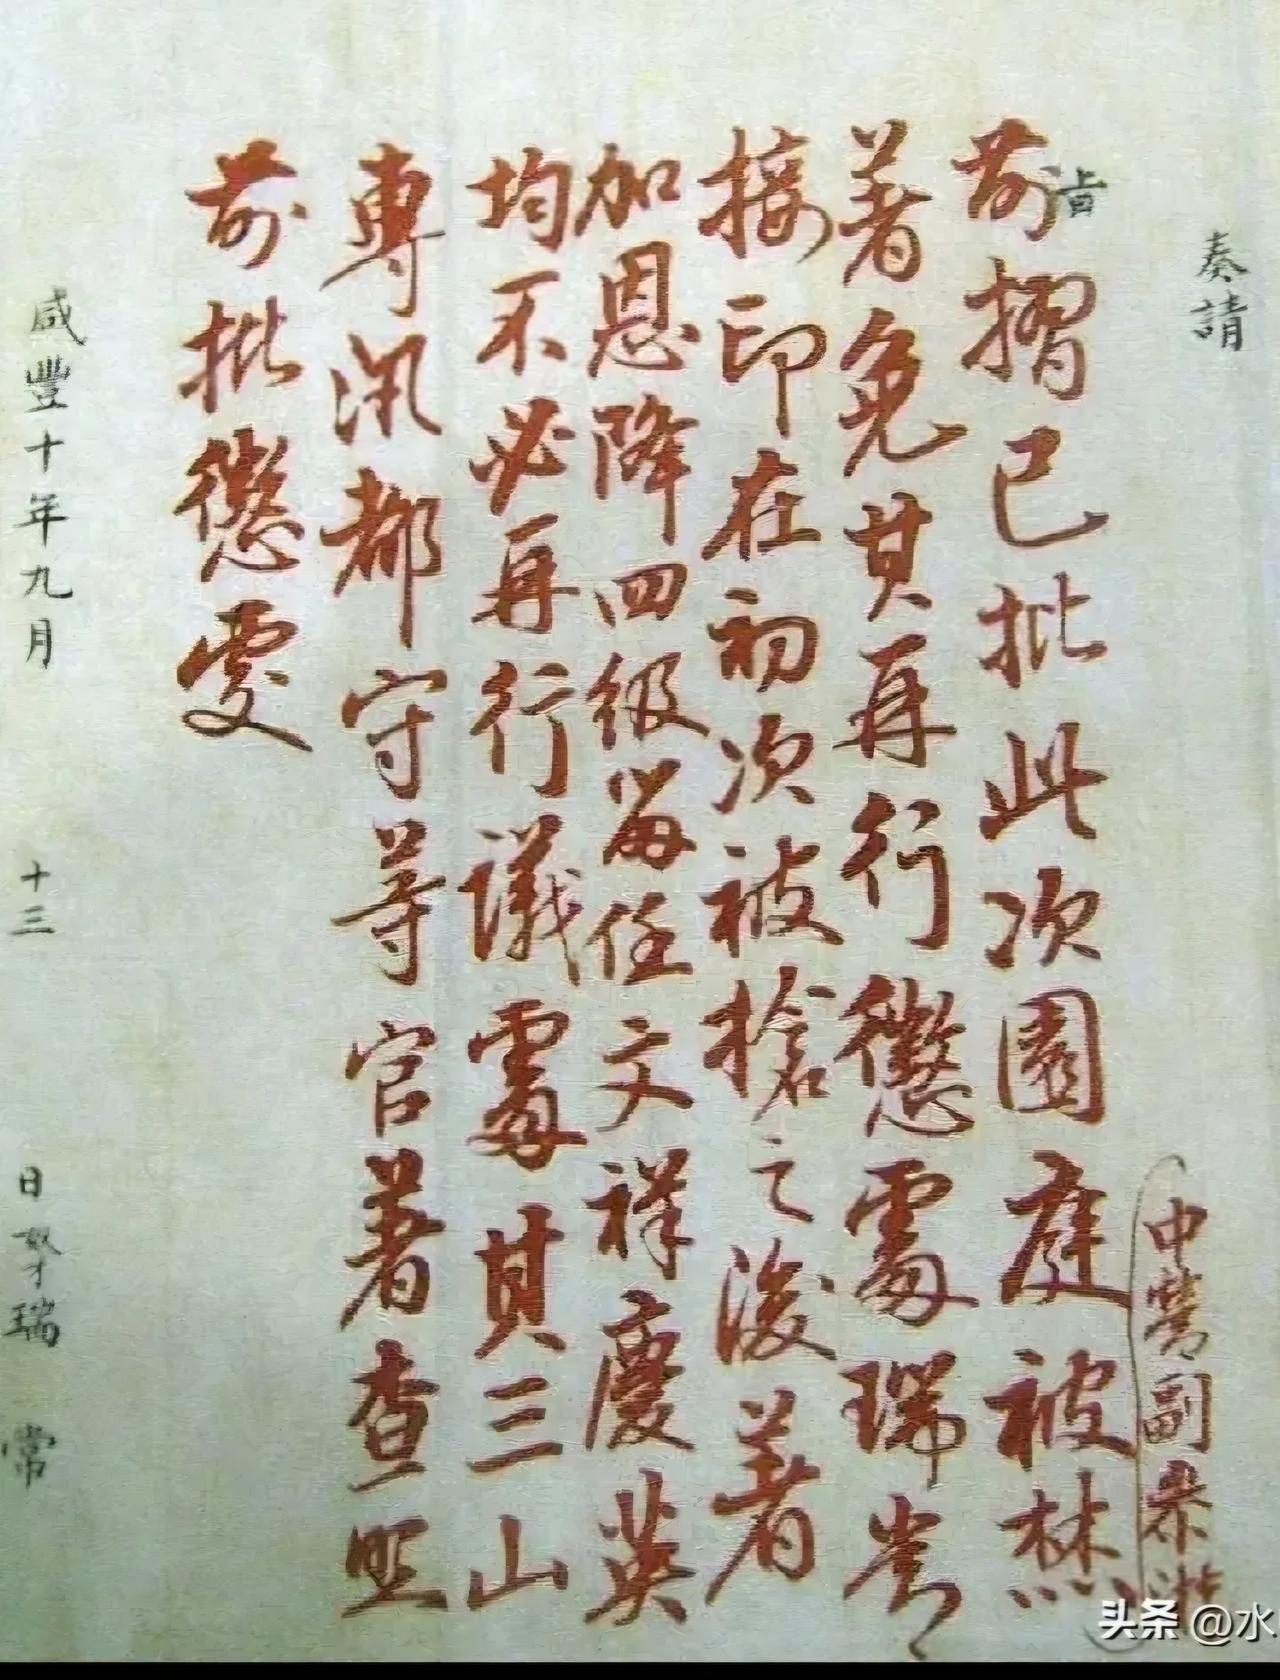 奏請
旨
中營副叅
前摺已批此次園庭被焚
著免其再行懲處瑞常
接印在初次被搶之後著
加恩降四級留任文祥慶英
均不必再行議處其三山
專汛都守等官著查照
前批懲處
咸豐十年九月 十三 日 瑞 常
头条 @水